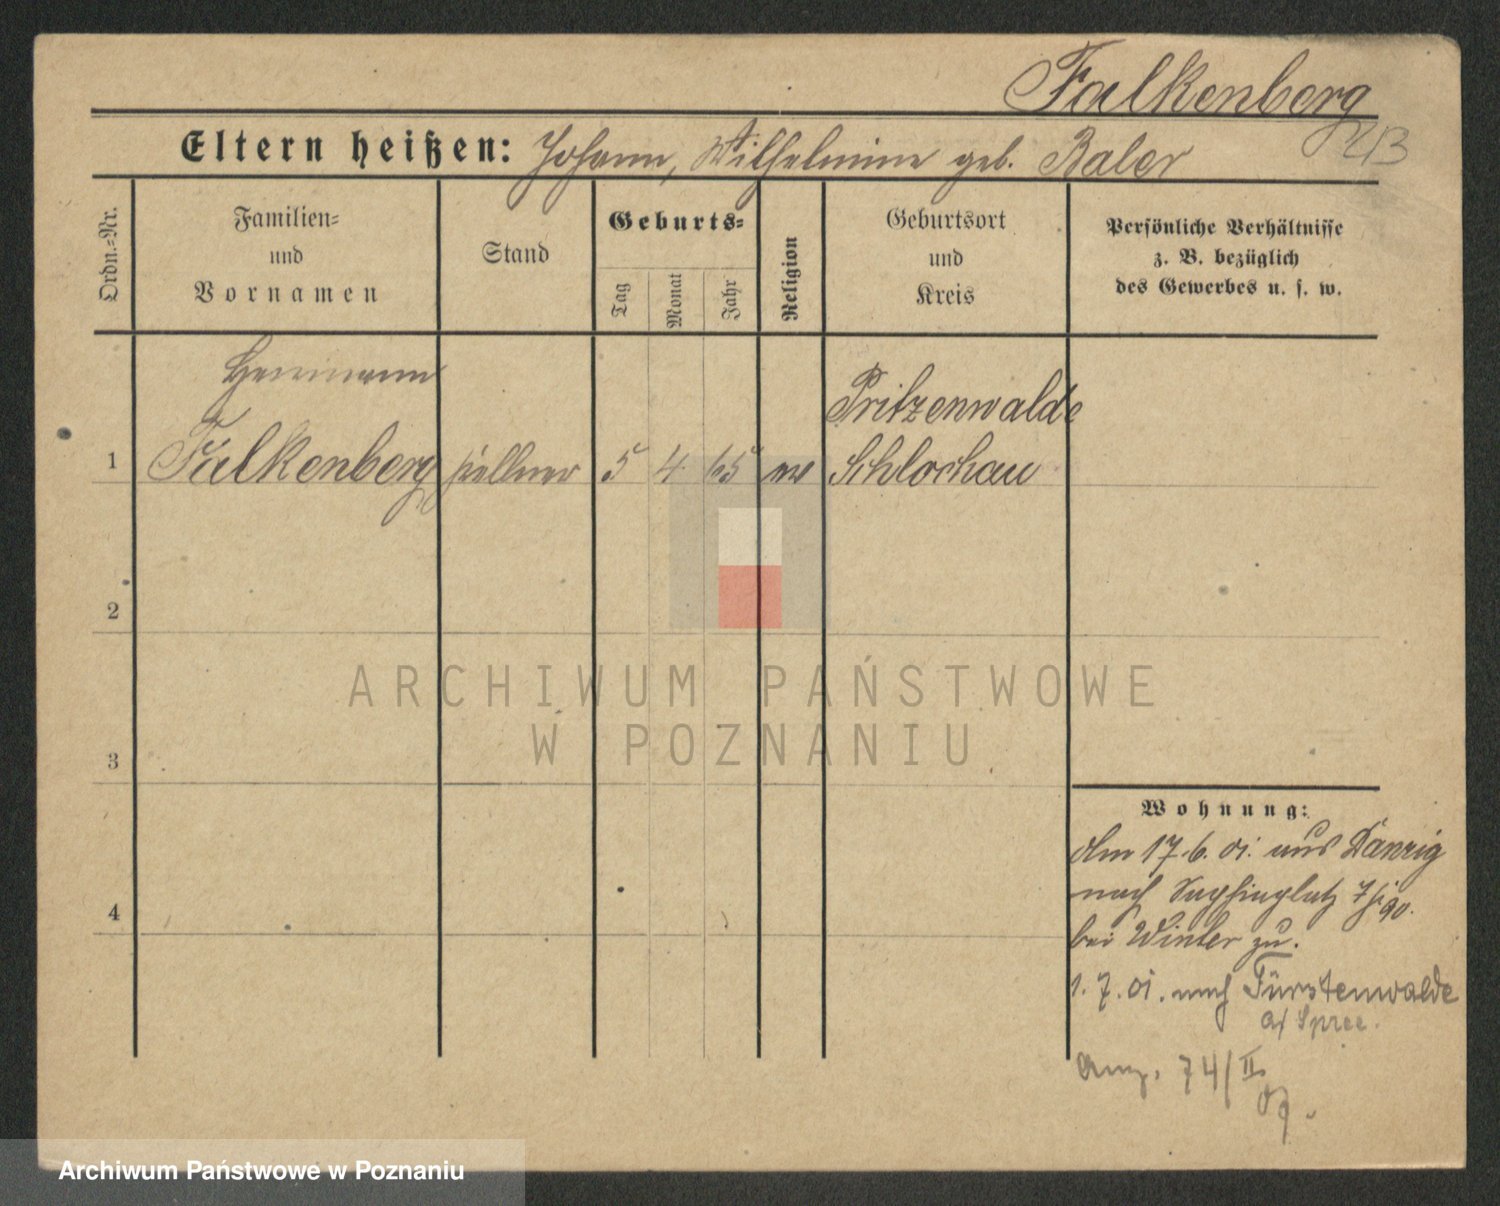 Falkenberg
Eltern heißen: Johann, Wilhelmine geb. Baler
Ordn.=Nr.
Familien=
und
Vornamen
Stand
Geburts=
Tag
Monat
Jahr
Religion
Geburtsort
und
Kreis
Persönliche Verhältnisse
z. B. bezüglich
des Gewerbes u. s. w.
Hermann
Pritzenwalde
1 Falkenberg Kellner 5 4 65 ev Schlochau
2
ARCHIWUM PAŃSTWOWE
W POZNANIU
3
Wohnung:
Am 17.6.01. aus Danzig
4
nach
bei Winter zu.
1.7.01. nach Fürstenwalde
a/ Spree.
74/II
Archiwum Państwowe w Poznaniu